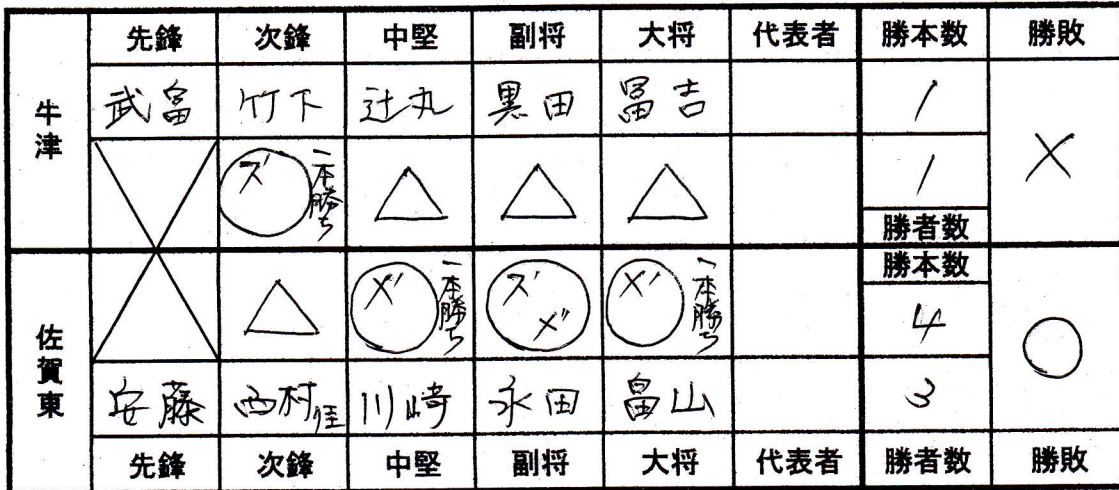 先鋒 次鋒 中堅 副将 大将 代表者 勝本数 勝敗
牛津 武富 竹下 辻丸 黒田 冨吉 1 ×
ズ 一本勝ち △ △ △ 1
勝者数
勝本数
佐賀東 △ メ 一本勝ち ズ メ メ 一本勝ち 4 ○
安藤 西村佳 川崎 永田 畠山 3
先鋒 次鋒 中堅 副将 大将 代表者 勝者数 勝敗